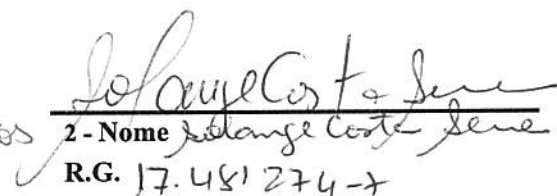 Solange Costa Sene
os 2 - Nome Solange Costa Sene
R.G. 17.481274-7